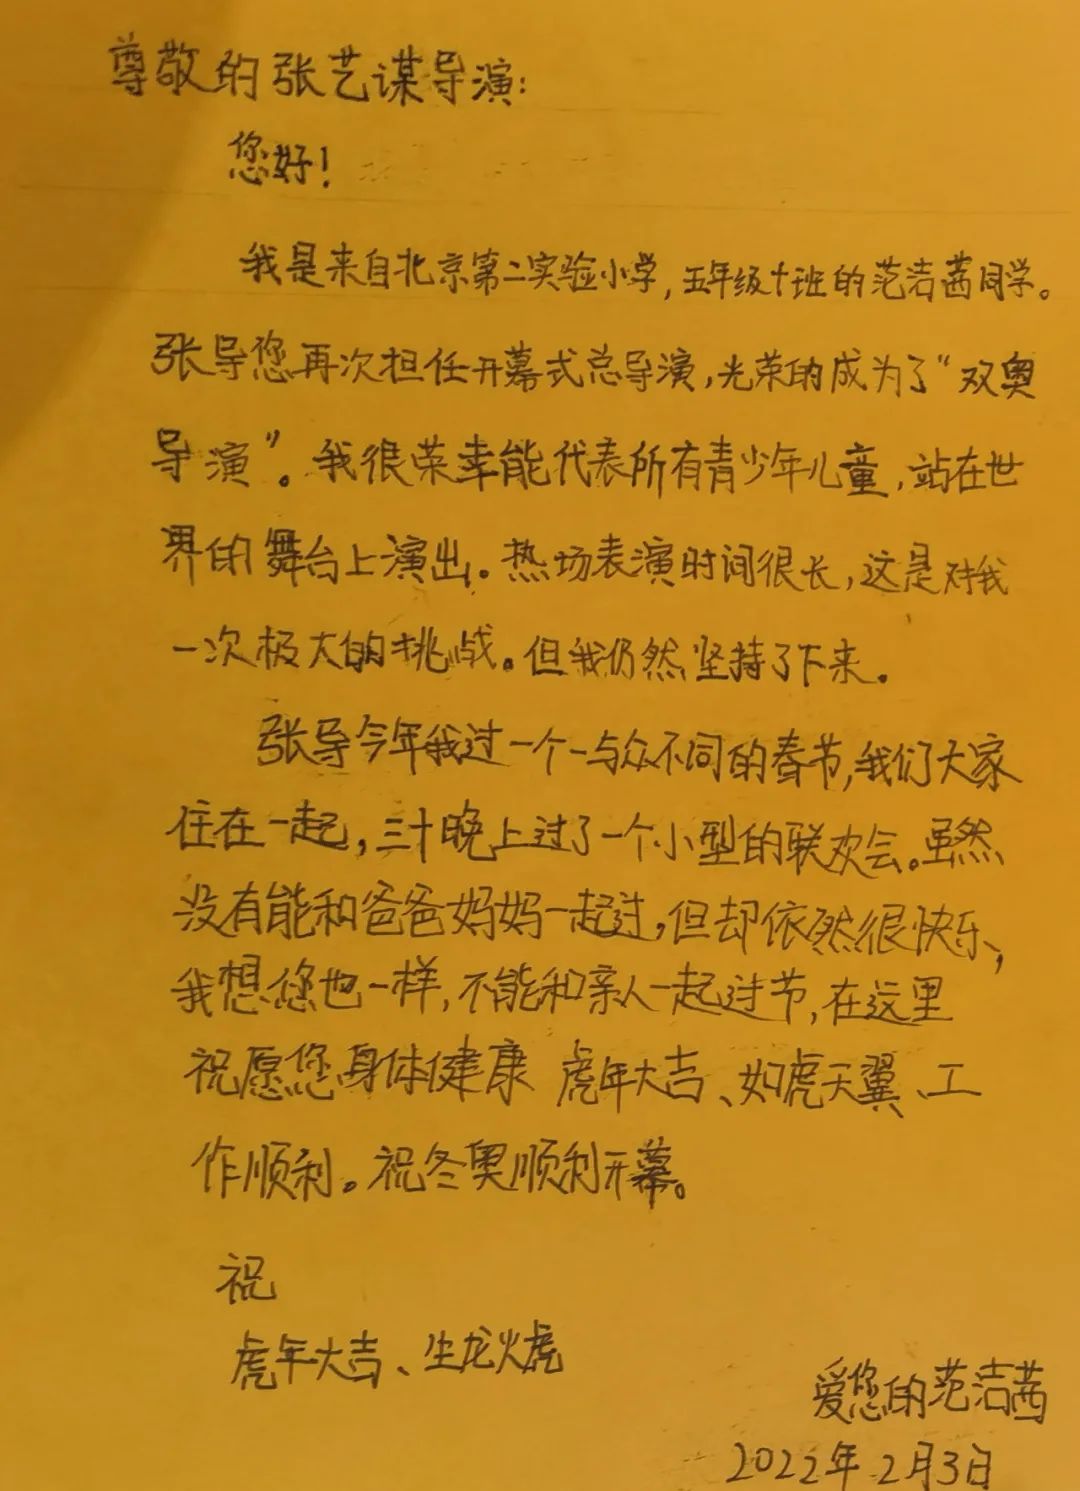 尊敬的张艺谋导演:
您好!
我是来自北京第二实验小学,五年级十班的范洁茜同学。
张导您再次担任开幕式总导演,光荣的成为了“双奥
导演”。我很荣幸能代表所有青少年儿童,站在世
界的舞台上演出。热场表演时间很长,这是对我
一次极大的挑战。但我仍然坚持了下来。
张导今年我过一个一与众不同的春节,我们大家
住在一起,三十晚上过了一个小型的联欢会。虽然
没有能和爸爸妈妈一起过,但却依然很快乐、,
我想您也一样,不能和亲人一起过节,在这里
祝愿您身体健康 虎年大吉、如虎天翼、工
作顺利。祝冬奥顺利开幕。
祝
虎年大吉、生龙火虎
爱您的范洁茜
2022年2月3日